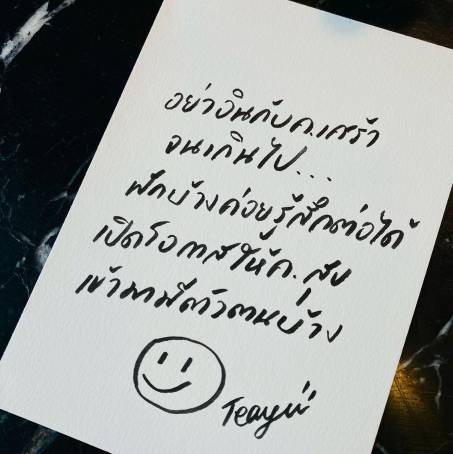 อย่าอินกับค.เศร้า
จนเกินไป...
พักบ้างค่อยรู้สึกต่อได้
เปิดโอกาสให้ค.สุข
เข้ามามีตัวตนบ้าง